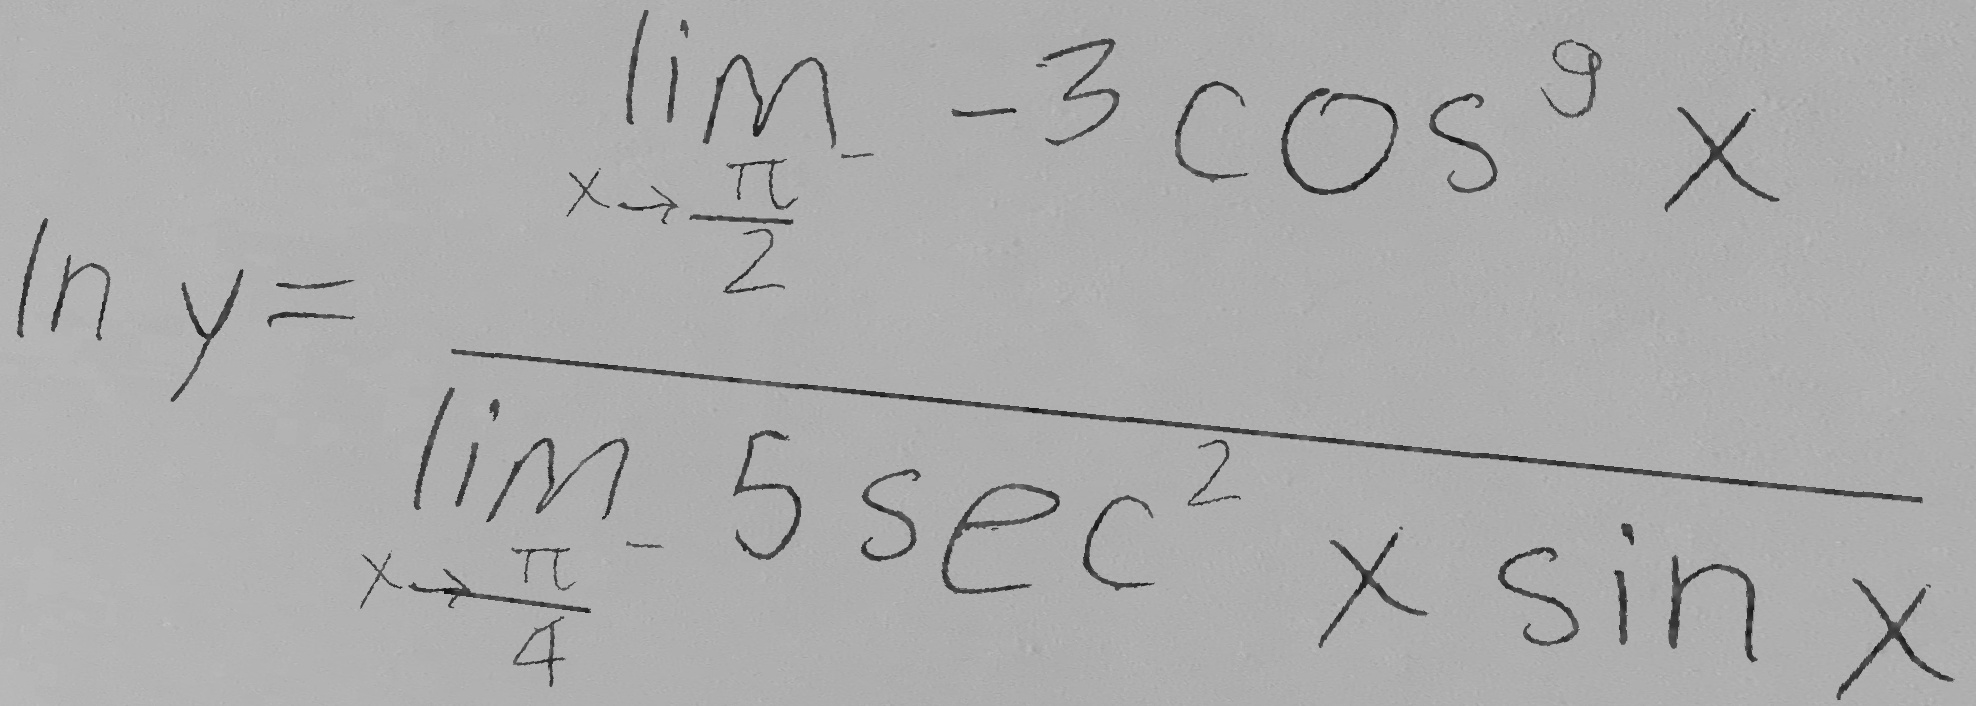 ln y = \frac{\lim_{x \to \frac{\pi}{2}^-} -3 \cos^9 x}{\lim_{x \to \frac{\pi}{4}^-} 5 \sec^2 x \sin x}